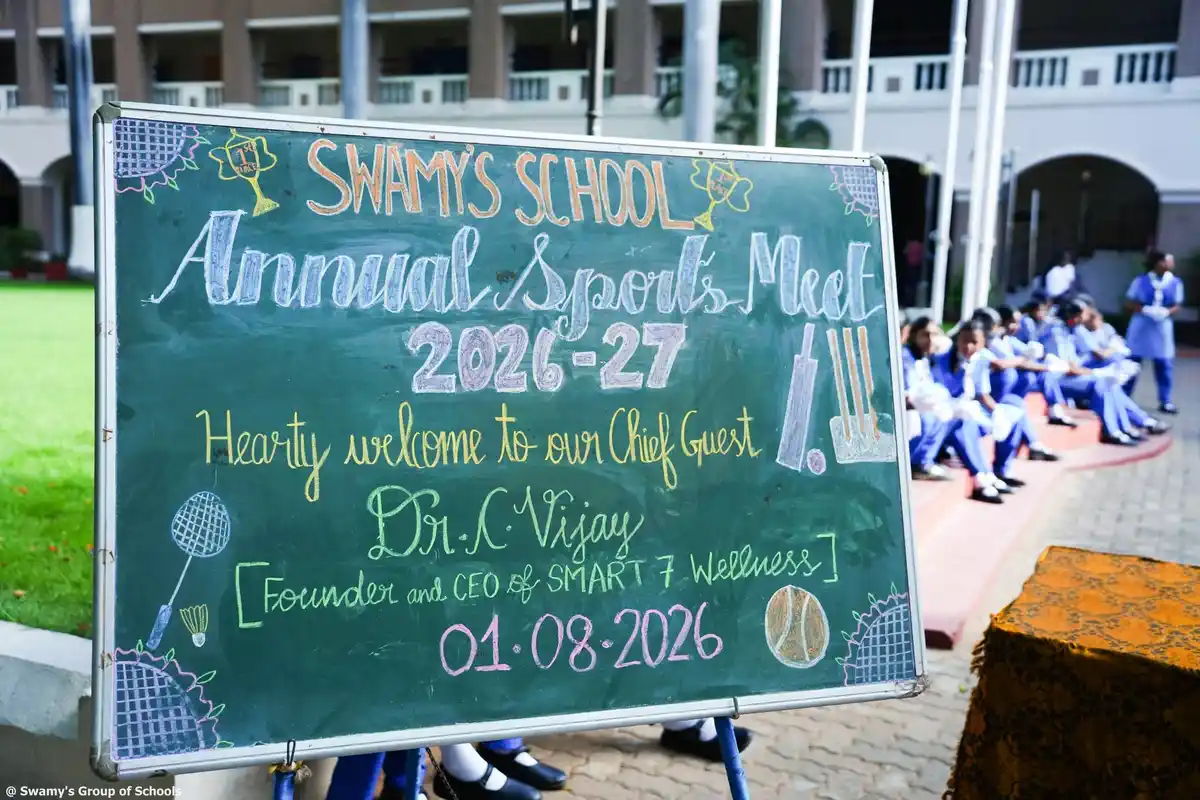 1ST PLACE
SWAMY'S SCHOOL
Annual Sport's Meet
2026-27
Hearty welcome to our Chief Guest
Dr. C. Vijay
[Founder and CEO of SMART 7 Wellness]
01.08.2026
@ Swamy's Group of Schools